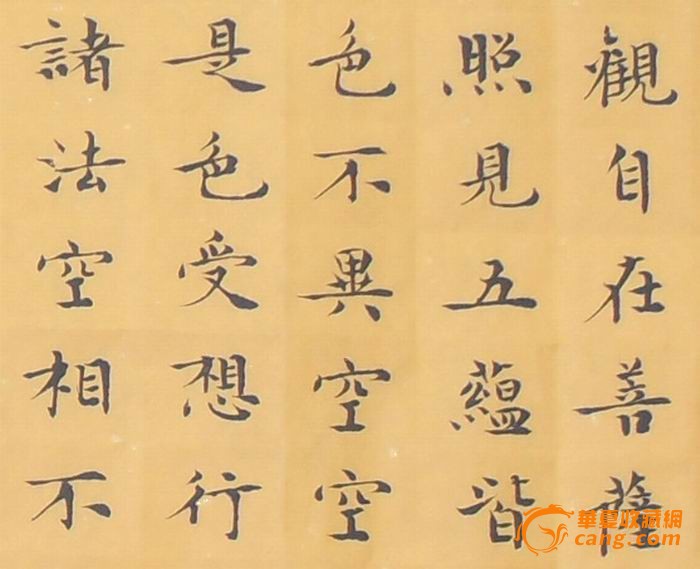 觀自在菩薩
照見五蘊皆
色不異空空
是色受想行
諸法空相不
華夏收藏網
cang.com